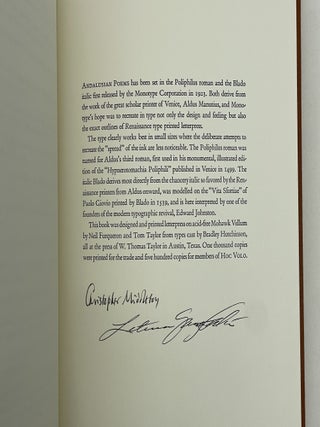 ANDALUSIAN POEMS has been set in the Poliphilus roman and the Blado
italic first released by the Monotype Corporation in 1923. Both derive
from the work of the great scholar printer of Venice, Aldus Manutius, and Mono-
type's hope was to recreate in type not only the design and feeling but also
the exact outlines of Renaissance type printed letterpress.
The type clearly works best in small sizes where the deliberate attempts to
recreate the "spread" of the ink are less noticeable. The Poliphilus roman was
named for Aldus's third roman, first used in his monumental, illustrated edition
of the "Hypnerotomachia Poliphili" published in Venice in 1499. The
italic Blado derives most directly from the chancery italic so favored by the Ren-
aissance printers from Aldus onward, was modelled on the "Vita Sfortiae" of
Paolo Giovio printed by Blado in 1539, and is here interpreted by one of the
founders of the modern typographic revival, Edward Johnston.
This book was designed and printed letterpress on acid-free Mohawk Vellum
by Neil Furqueron and Tom Taylor from types cast by Bradley Hutchinson,
all at the press of W. Thomas Taylor in Austin, Texas. One thousand copies
were printed for the trade and five hundred copies for members of HOC VOLO.
Christopher Middleton